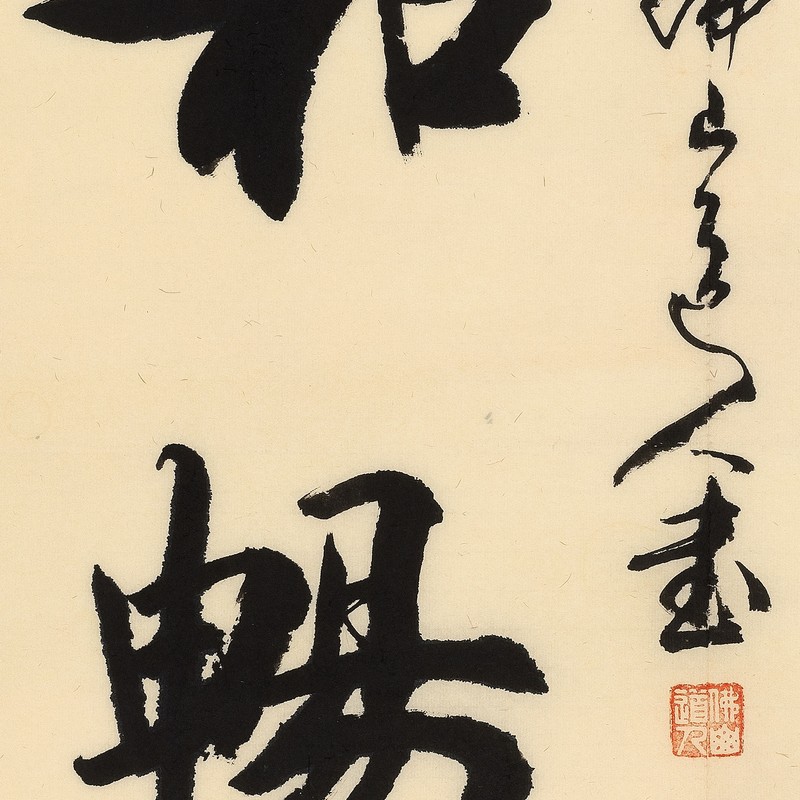 佛山道人書
和暢
佛山
道人